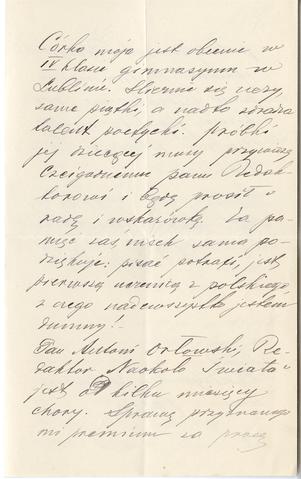 Córka moja jest obecnie w
IV klasie gimnazyum w
Lublinie. Ślicznie się uczy,
same piątki, a nadto zdradza
talent poetycki. Próbki
jej dziecięcej muzy przysyłam
Czcigodnemu panu Redak-
torowi i będę prosił o
radę i wskazówkę. Za pa-
mięć zaś niech sama po-
dziękuje: pisać potrafi, jest
pierwszą uczenicą z polskiego,
z czego nadewszystko jestem
dumny!—
Pan Antoni Orłowski, Re-
daktor Naokoło Świata
jest od kilku miesięcy
chory. Sprawę przyznanego
mi premium za pracę